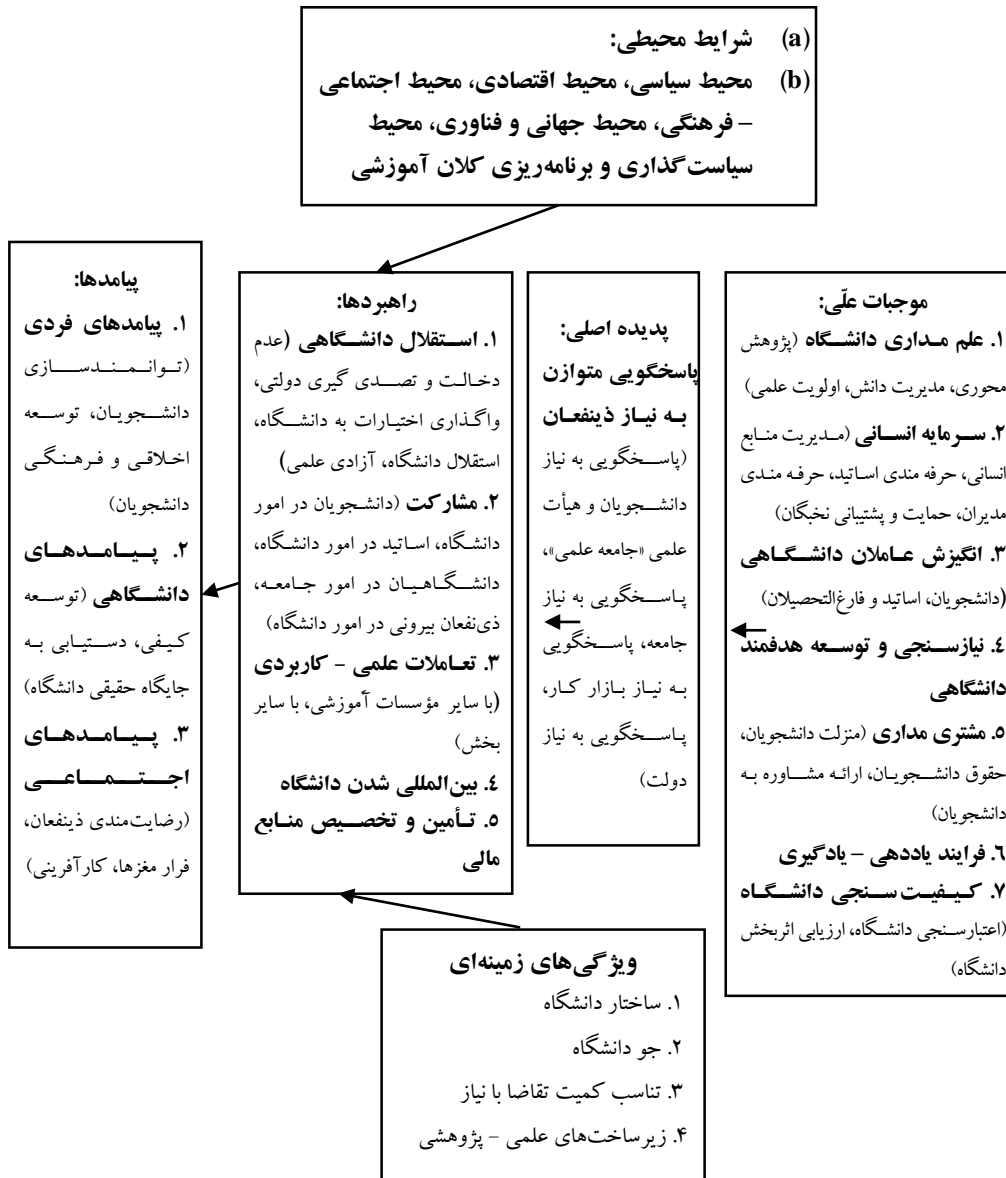 (a) شرایط محیطی:
(b) محیط سیاسی، محیط اقتصادی، محیط اجتماعی
– فرهنگی، محیط جهانی و فناوری، محیط
سیاست‌گذاری و برنامه‌ریزی کلان آموزشی
موجبات علّی:
۱. علم مداری دانشگاه (پژوهش
محوری، مدیریت دانش، اولویت علمی)
۲. سرمایه انسانی (مدیریت منابع
انسانی، حرفه مندی اساتید، حرفه مندی
مدیران، حمایت و پشتیبانی نخبگان)
۳. انگیزش عاملان دانشگاهی
(دانشجویان، اساتید و فارغ‌التحصیلان)
٤. نیازسنجی و توسعه هدفمند
دانشگاهی
٥. مشتری مداری (منزلت دانشجویان،
حقوق دانشجویان، ارائه مشاوره به
دانشجویان)
٦. فرایند یاددهی – یادگیری
۷. کیفیت سنجی دانشگاه
(اعتبارسنجی دانشگاه، ارزیابی اثربخش
دانشگاه)
پدیده اصلی:
پاسخگویی متوازن
به نیاز ذینفعان
(پاسخگویی به نیاز
دانشجویان و هیأت
علمی «جامعه علمی»،
پاسخگویی به نیاز
جامعه، پاسخگویی
به نیاز بازار کار،
پاسخگویی به نیاز
دولت)
راهبردها:
۱. استقلال دانشگاهی (عدم
دخالت و تصدی گیری دولتی،
واگذاری اختیارات به دانشگاه،
استقلال دانشگاه، آزادی علمی)
۲. مشارکت (دانشجویان در امور
دانشگاه، اساتید در امور دانشگاه،
دانشگاهیان در امور جامعه،
ذی‌نفعان بیرونی در امور دانشگاه)
۳. تعاملات علمی – کاربردی
(با سایر مؤسسات آموزشی، با سایر
بخش)
٤. بین‌المللی شدن دانشگاه
٥. تأمین و تخصیص منابع
مالی
پیامدها:
۱. پیامدهای فردی
(توانمندسازی
دانشجویان، توسعه
اخلاقی و فرهنگی
دانشجویان)
۲. پیامدهای
دانشگاهی (توسعه
کیفی، دستیابی به
جایگاه حقیقی دانشگاه)
۳. پیامدهای
اجتماعی
(رضایت‌مندی ذینفعان،
فرار مغزها، کارآفرینی)
ویژگی‌های زمینه‌ای
۱. ساختار دانشگاه
۲. جو دانشگاه
۳. تناسب کمیت تقاضا با نیاز
۴. زیرساخت‌های علمی – پژوهشی